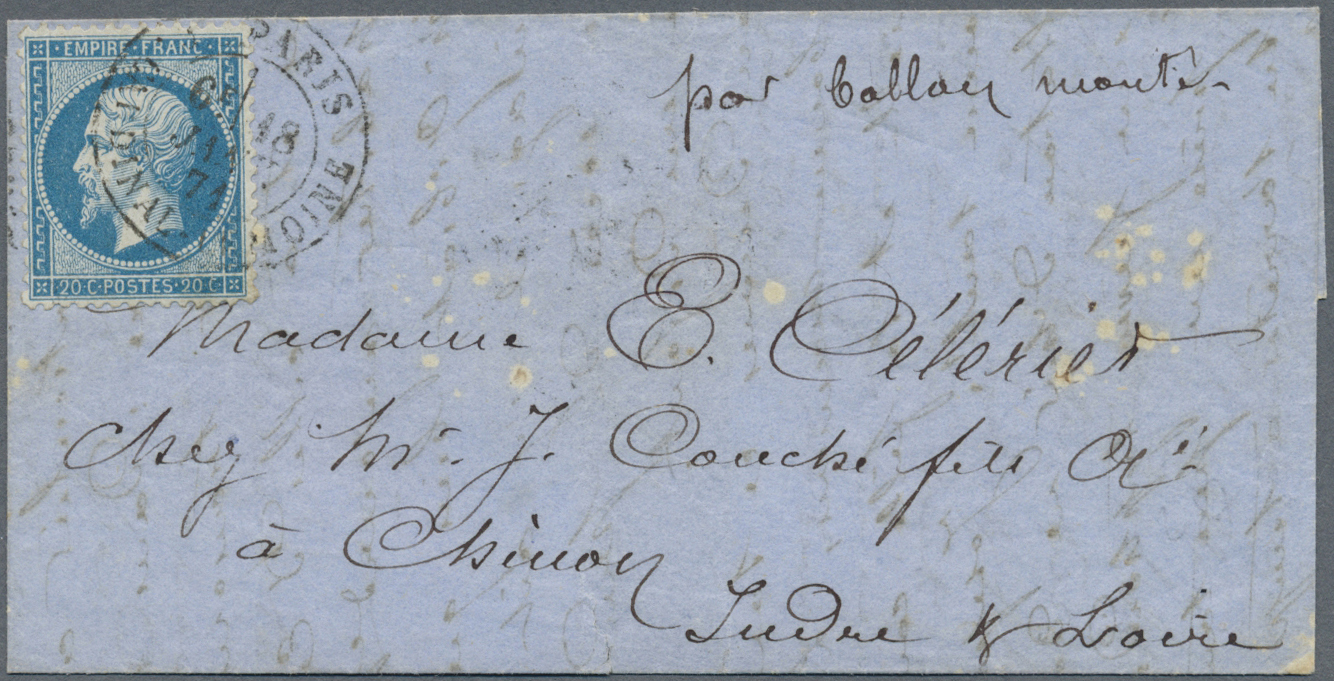 EMPIRE·FRANC
20·C·POSTES·20·C
PARIS
6E/
18
JANV
71
par ballon monté
Madame E. Célérier
chez Mr. J. Couché fils
à Chinon
Indre & Loire